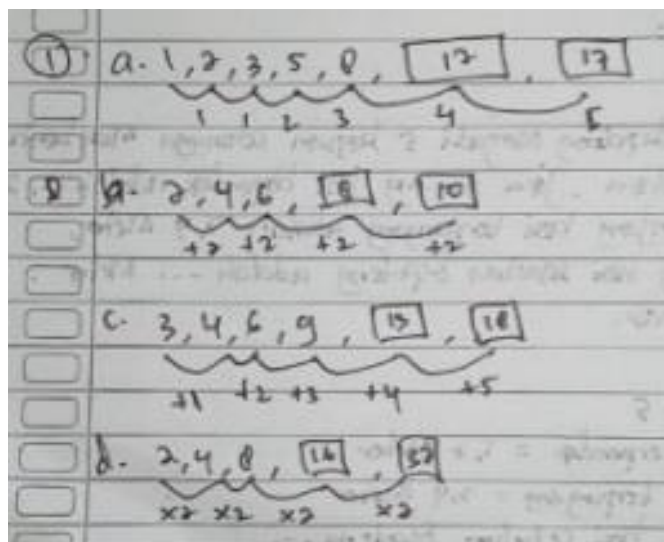 1 a. 1, 2, 3, 5, 8, 12, 17
1 1 2 3 4 5
b. 2, 4, 6, 8, 10
+2 +2 +2 +2
c. 3, 4, 6, 9, 13, 18
+1 +2 +3 +4 +5
d. 2, 4, 8, 16, 32
x2 x2 x2 x2